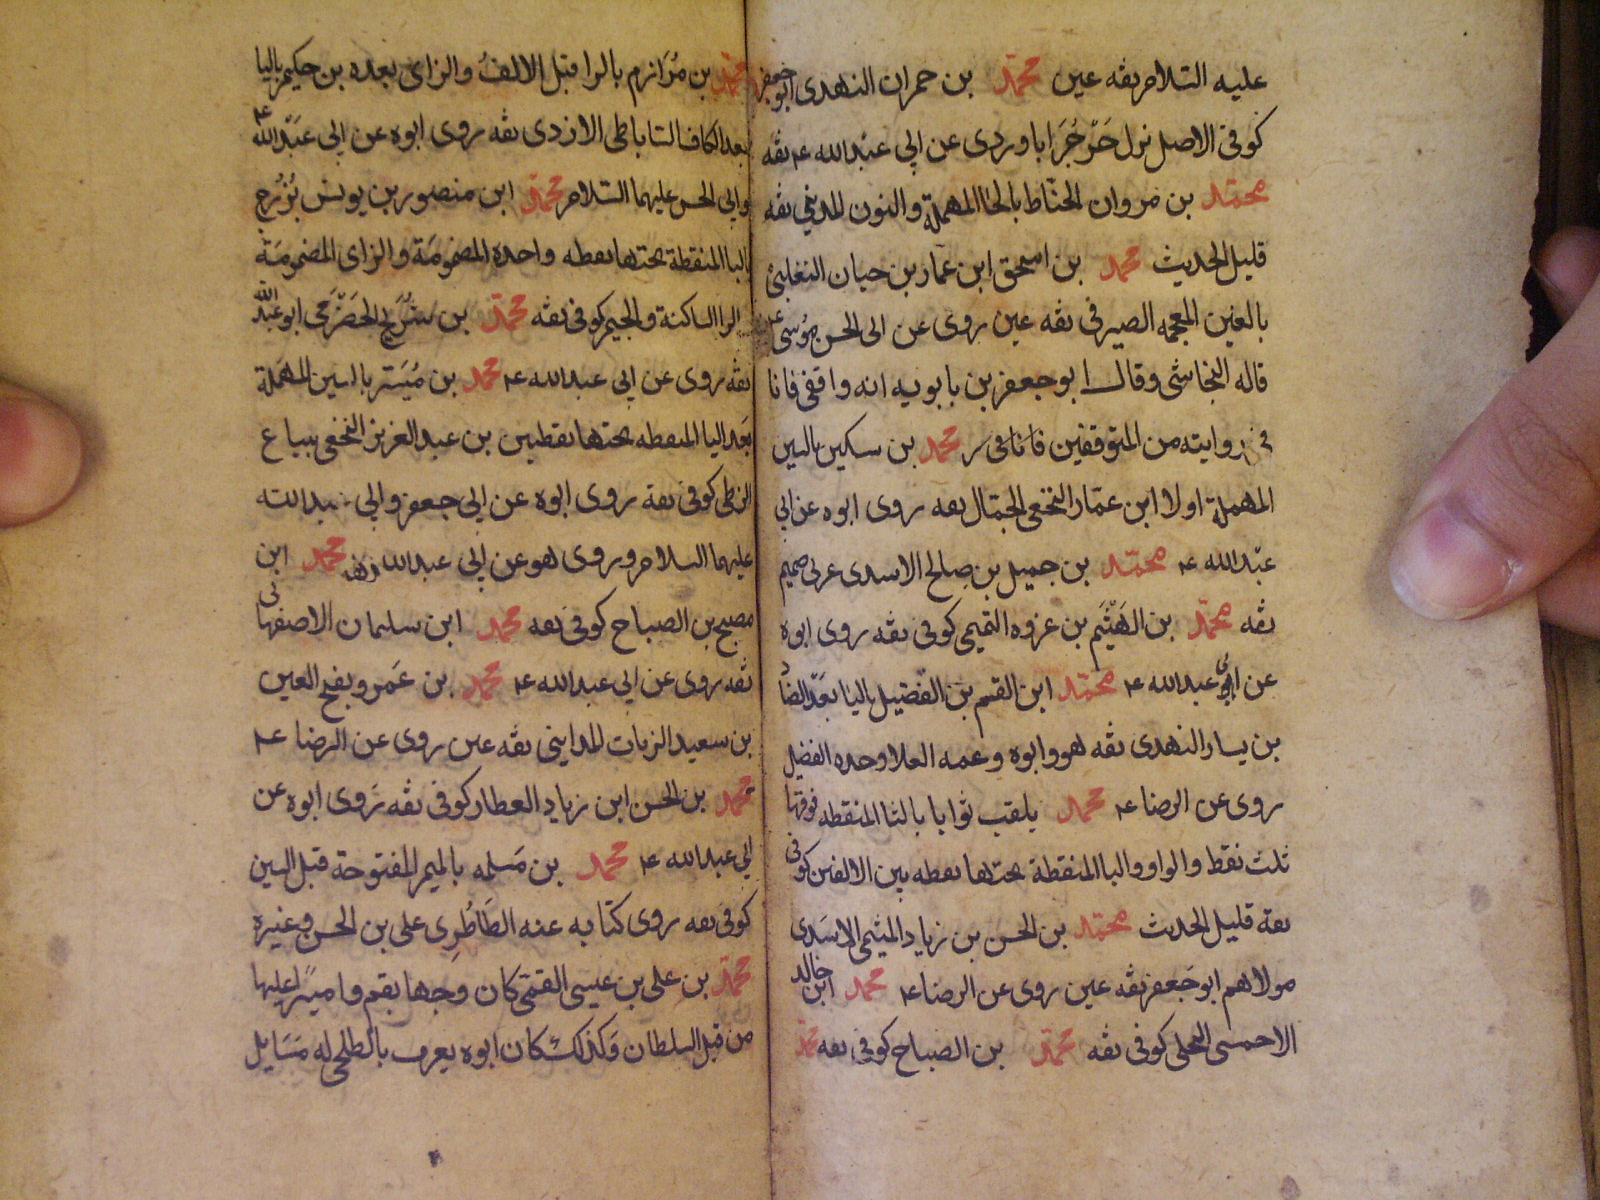 عليه السلام ثقه عين محمد بن حمران النهدى ابو جعفر
كوفى الاصل نزل جرجرايا وردى عن ابي عبد الله ع ثقه
محمد بن مروان الحناط بالحا المهملة والنون المديني ثقه
قليل الحديث محمد بن اسحق ابن عمار بن حيان التغلبى
بالغين المعجمه الصيرفى ثقه عين روى عن ابى الحسن موسى ع
قاله النجاشى وقال ابو جعفر بن بابويه انه واقفى فانا
فى روايته من المتوقفين محمد بن سكين بالسين
المهملة اولا ابن عمار النخعى الجمال ثقه روى ابوه عن ابي
عبد الله ع محمد بن جميل بن صالح الاسدى عربى صميم
ثقه محمد بن الهيثم بن عروه التميمى كوفى ثقه روى ابوه
عن ابي عبد الله ع محمد ابن القسم بن الفضيل باليا بعد الضاد
بن يسار النهدى ثقه هو وابوه وعمه العلا وجده الفضيل
روى عن الرضا ع محمد يلقب ثوابا بالثا المنقطه فوقها
ثلث نقط والواو والبا المنقطة تحتها نقطه بين الالفين كوفى
ثقة قليل الحديث محمد بن الحسن بن زياد الميثمى الاسدى
مولاهم ابو جعفر ثقه عين روى عن الرضا ع محمد ابن خالد
الاحمسى البجلى كوفى ثقه محمد بن الصباح كوفى ثقه محمد
محمد بن مرازم بالرا قبل الالف والزاى بعده بن حكيم باليا
بعد الكاف الساباطى الازدى ثقه روى ابوه عن ابي عبد الله ع
وابى الحسن عليهما السلام محمد ابن منصور بن يونس بزرج
بالبا المنقطة تحتها نقطه واحده المضمومة والزاى المضمومة
الرا الساكنة والجيم كوفى ثقه محمد بن شريح الحضرمى ابو عبد الله
ثقه روى عن ابي عبد الله ع محمد بن ميسر بالسين المهملة
بعد اليا المنقطه تحتها نقطتين بن عبد العزيز النخعى بياع
الزطى كوفى ثقة روى ابوه عن ابي جعفر وابي عبد الله
عليهما السلام وروى هو عن ابي عبد الله محمد ابن
مصبح بن الصباح كوفى ثقه محمد ابن سليمان الاصفهانى
ثقه روى عن ابي عبد الله ع محمد بن عمرو بفتح العين
بن سعيد الزيات المدايني ثقه عين روى عن الرضا ع
محمد بن الحسن ابن زياد العطار كوفى ثقه روى ابوه عن
ابي عبد الله ع محمد بن مسلمه بالميم المفتوحة قبل السين
كوفى ثقه روى كتابه عنه الطاطرى على بن الحسن وغيره
محمد بن على بن عيسى القمى كان وجها بقم واميرا عليها
من قبل السلطان وكذلك كان ابوه يعرف بالطلحى له مسايل